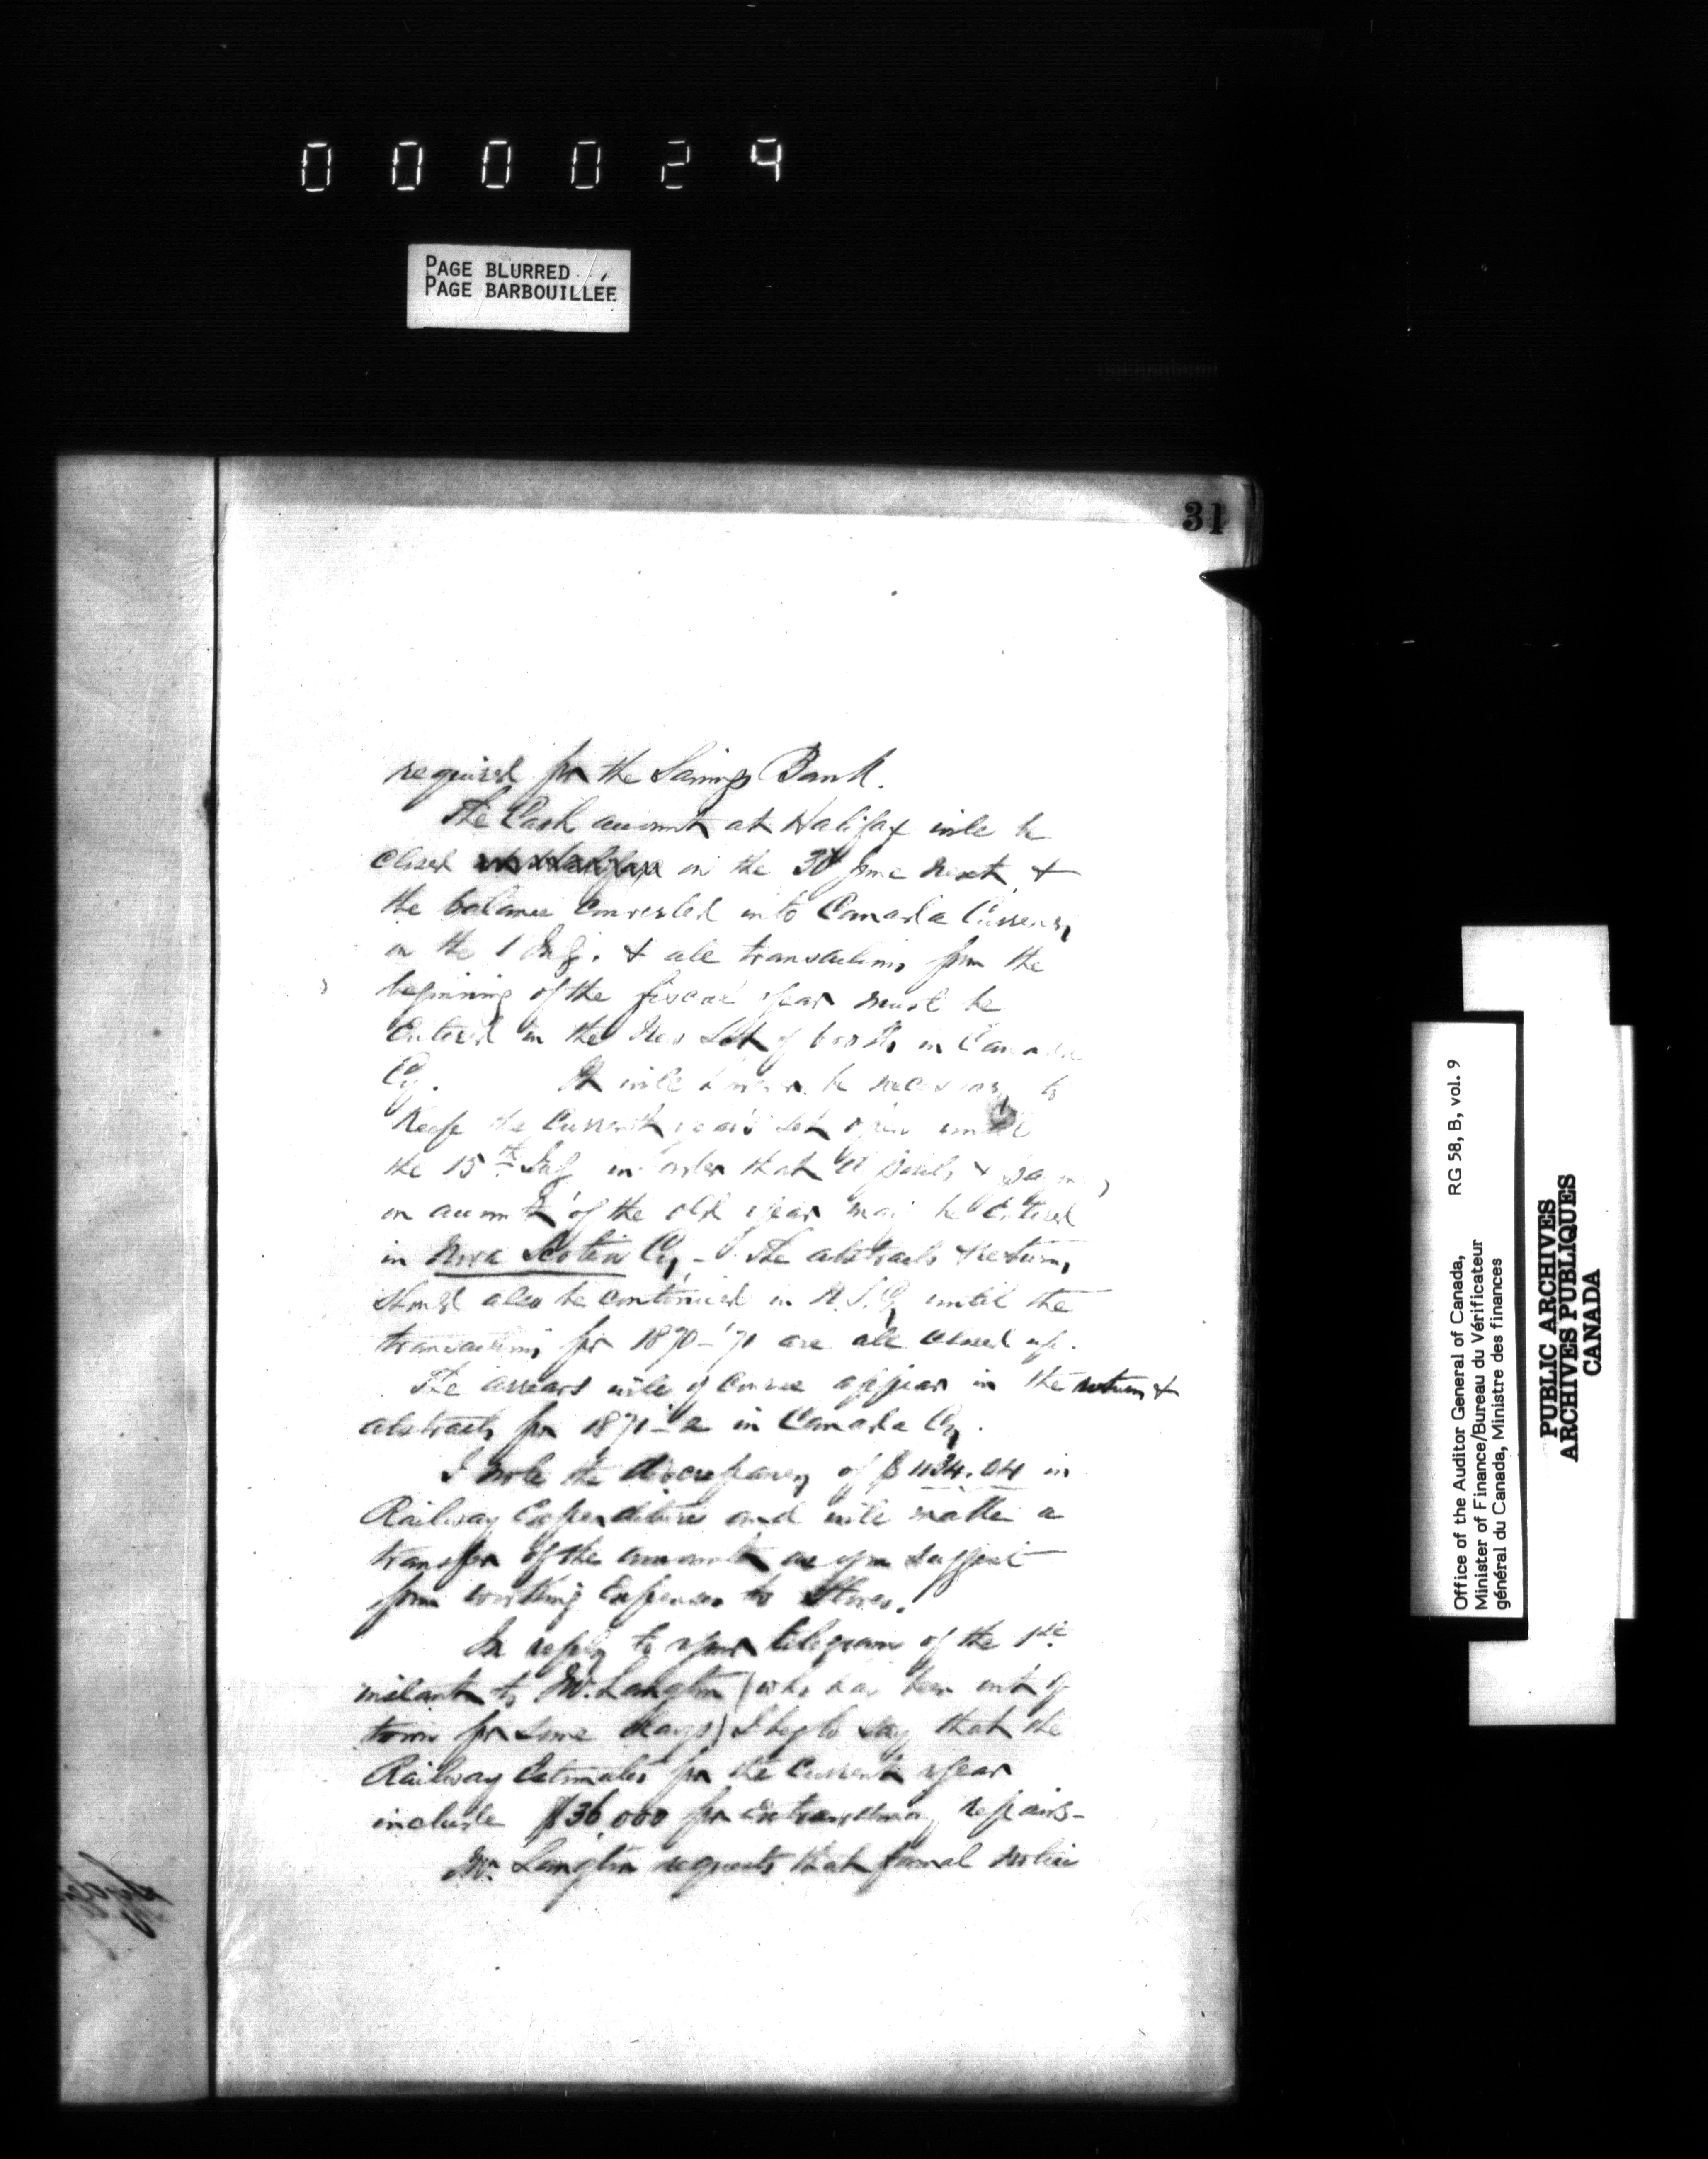 000029
PAGE BLURRED
PAGE BARBOUILLÉE
31
required for the Savings Bank.
The Cash account at Halifax will be
closed at Halifax on the 30 June next &
the balance converted into Canada Currency
on the 1 July. & all transactions from the
beginning of the fiscal year must be
Entered in the New Set of books in Canada
Cy. It will however be necessary to
Keep the Current year's set open until
the 15th July in order that deposits &
on account of the old year may be Entered
in Nova Scotia Cy - The abstracts & Returns
should also be continued in N.S. Cy until the
transactions for 1870-'71 are all closed up.
The arrears will of course appear in the return &
abstracts for 1871-2 in Canada Cy.
I note the discrepancy of $1134.04 in
Railway Expenditures and will make a
transfer of the amount as you suggest
from working Expenses to Stores.
In reply to your telegram of the 1st
instant to Mr. Langton (who has been out of
town for some days) I beg to say that the
Railway Estimates for the Current year
include $36,000 for Extraordinary repairs-
Mr. Langton requests that formal notice
Office of the Auditor General of Canada,
Minister of Finance/Bureau du Vérificateur
général du Canada, Ministre des finances
RG 58, B, vol. 9
PUBLIC ARCHIVES
ARCHIVES PUBLIQUES
CANADA